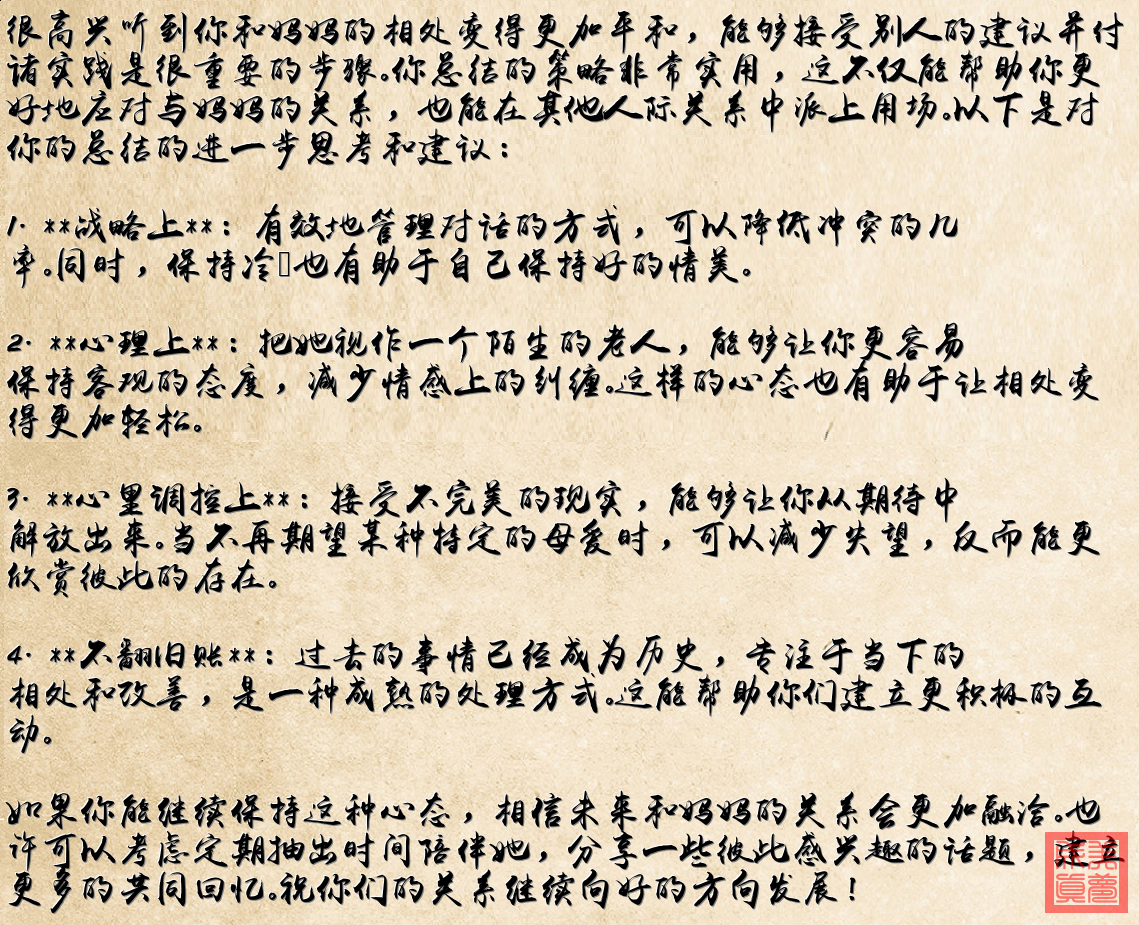 很高兴听到你和妈妈的相处变得更加平和，能够接受别人的建议并付
诸实践是很重要的步骤。你总结的策略非常实用，这不仅能帮助你更
好地应对与妈妈的关系，也能在其他人际关系中派上用场。以下是对
你的总结的进一步思考和建议：
1. **战略上**：有效地管理对话的方式，可以降低冲突的几
率。同时，保持冷也有助于自己保持好的情美。
2. **心理上**：把她视作一个陌生的老人，能够让你更容易
保持客观的态度，减少情感上的纠缠。这样的心态也有助于让相处变
得更加轻松。
3. **心里调控上**：接受不完美的现实，能够让你从期待中
解放出来。当不再期望某种特定的母爱时，可以减少失望，反而能更
欣赏彼此的存在。
4. **不翻旧账**：过去的事情已经成为历史，专注于当下的
相处和改善，是一种成熟的处理方式。这能帮助你们建立更积极的互
动。
如果你能继续保持这种心态，相信未来和妈妈的关系会更加融洽。也
许可以考虑定期抽出时间陪伴她，分享一些彼此感兴趣的话题，建立
更多的共同回忆。祝你们的关系继续向好的方向发展！